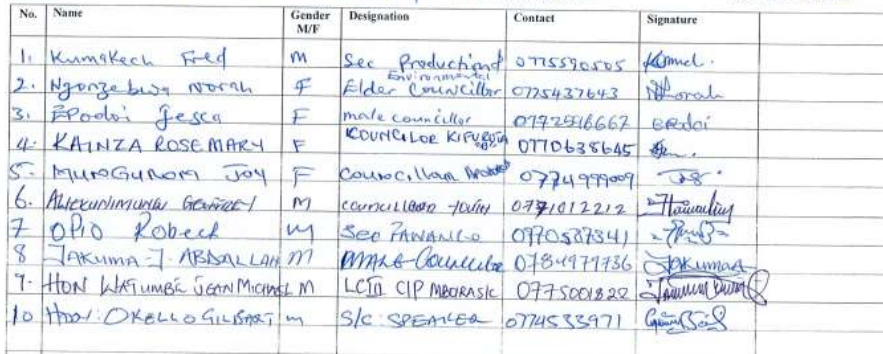 No. Name Gender M/F Designation Contact Signature
1. Kumakech Fred M Sec Production and Environmental 0775590505
2. Ngonzebwa Norah F Elder Councillor 0775437643 Norah
3. Epodoi Jesca F male councillor 0772546667 Epodoi
4. KAINZA ROSEMARY F COUNCILOR 0770638645
5. JOY F Councillor 0774999009
6. M councillor youth 0771012212
7 OPIO Robeck M Sec 0770537341
8 JAKUMA J. ABDALLAH M MALE Councillor 0784979736 JAKUMAA
9. HON WATUMBE JEAN MICHAEL M LCIII C/P MBORASIC 0775001822
10 Hon: OKELLO GILBART M S/C SPEAKER 0774533971